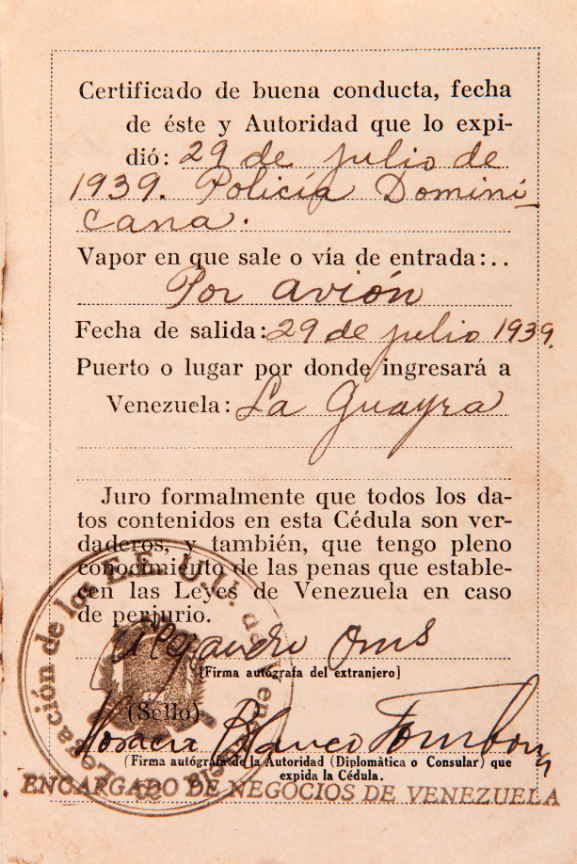 Certificado de buena conducta, fecha
de éste y Autoridad que lo expi-
dió: 29 de julio de
1939. Policía Domini-
cana.
Vapor en que sale o vía de entrada:..
Por avión
Fecha de salida: 29 de julio 1939.
Puerto o lugar por donde ingresará a
Venezuela: La Guayra
Juro formalmente que todos los da-
tos contenidos en esta Cédula son ver-
daderos, y también, que tengo pleno
conocimiento de las penas que estable-
cen las Leyes de Venezuela en caso
de perjurio.
Alejandro Oms
[Firma autógrafa del extranjero]
(Sello)
Horacio Blanco Fombona
(Firma autógrafa de la Autoridad (Diplomática o Consular) que
expida la Cédula.
Legación de los EE. U.U. de Venezuela
ENCARGADO DE NEGOCIOS DE VENEZUELA